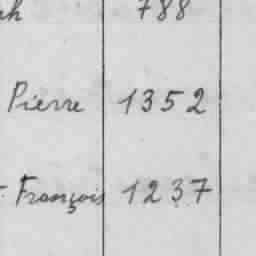 788
Pierre 1352
François 1237